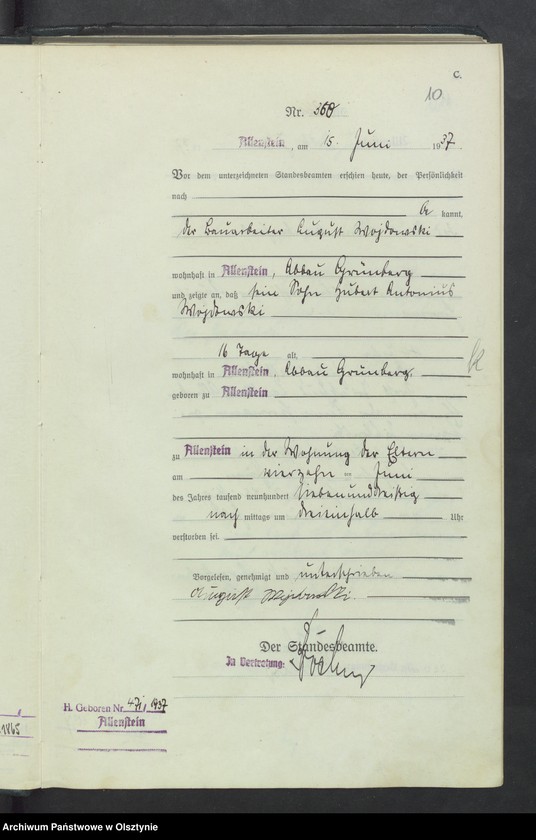 C.
10
Nr. 360
Allenstein, am 15. Juni 1937
Vor dem unterzeichneten Standesbeamten erschien heute, der Persönlichkeit
nach
be kannt,
der Bauarbeiter August Wojdowski
wohnhaft in Allenstein, Abbau Grünberg
und zeigte an, daß sein Sohn Hubert Antonius
Wojdowski
16 Tage alt,
wohnhaft in Allenstein, Abbau Grünberg.
geboren zu Allenstein
zu Allenstein in der Wohnung der Eltern
am vierzehn ten Juni
des Jahres tausend neunhundert siebenunddreißig
nach mittags um dreieinhalb Uhr
verstorben sei.
Vorgelesen, genehmigt und unterschrieben
August Wojdowski.
Der Standesbeamte.
In Vertretung:
H. Geboren Nr. 471/1937
Allenstein
1865
Archiwum Państwowe w Olsztynie